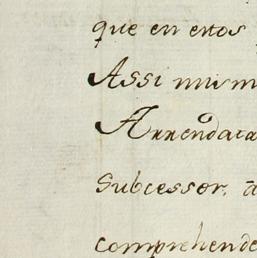 que en estos
Assi mism
Arrendata
Subcessor, à
comprehende